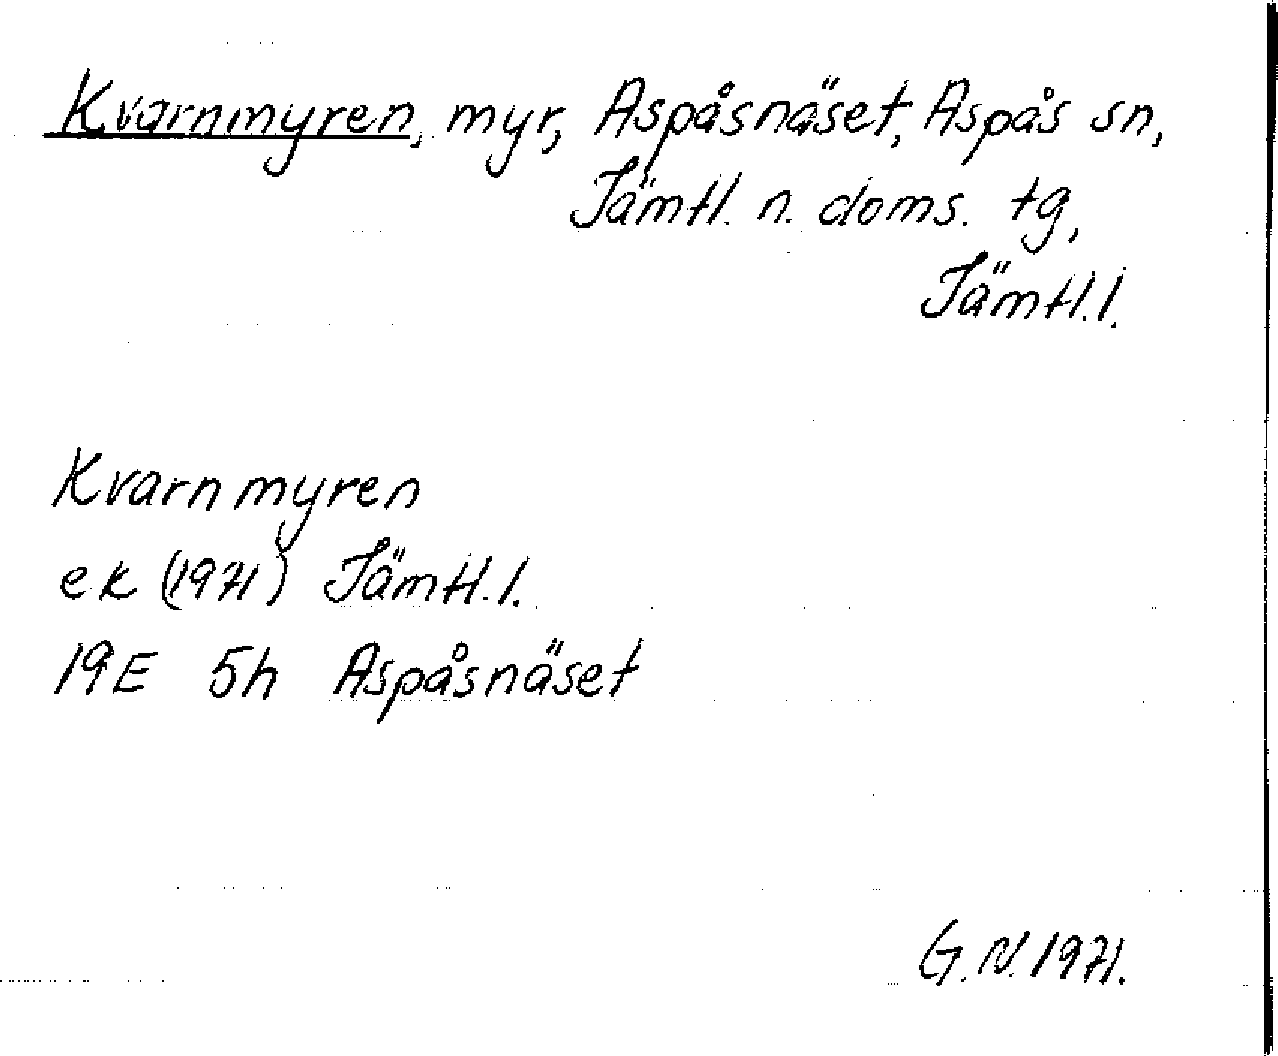 Kvarnmyren, myr, Aspåsnäset, Aspås sn,
Jämtl. n. doms. tg,
Jämtl.l.
Kvarnmyren
ek (1971) Jämtl.l.
19E 5h Aspåsnäset
G.N. 1971.